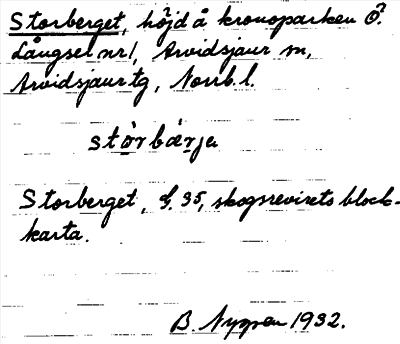 Storberget, höjd å kronoparken Ö.
Långsel nr 1, Arvidsjaur sn,
Arvidsjaur tg, Norrb. l.
stòrbærje
Storberget, S. 35, skogsrevirets block-
karta.
B. Nygren 1932.